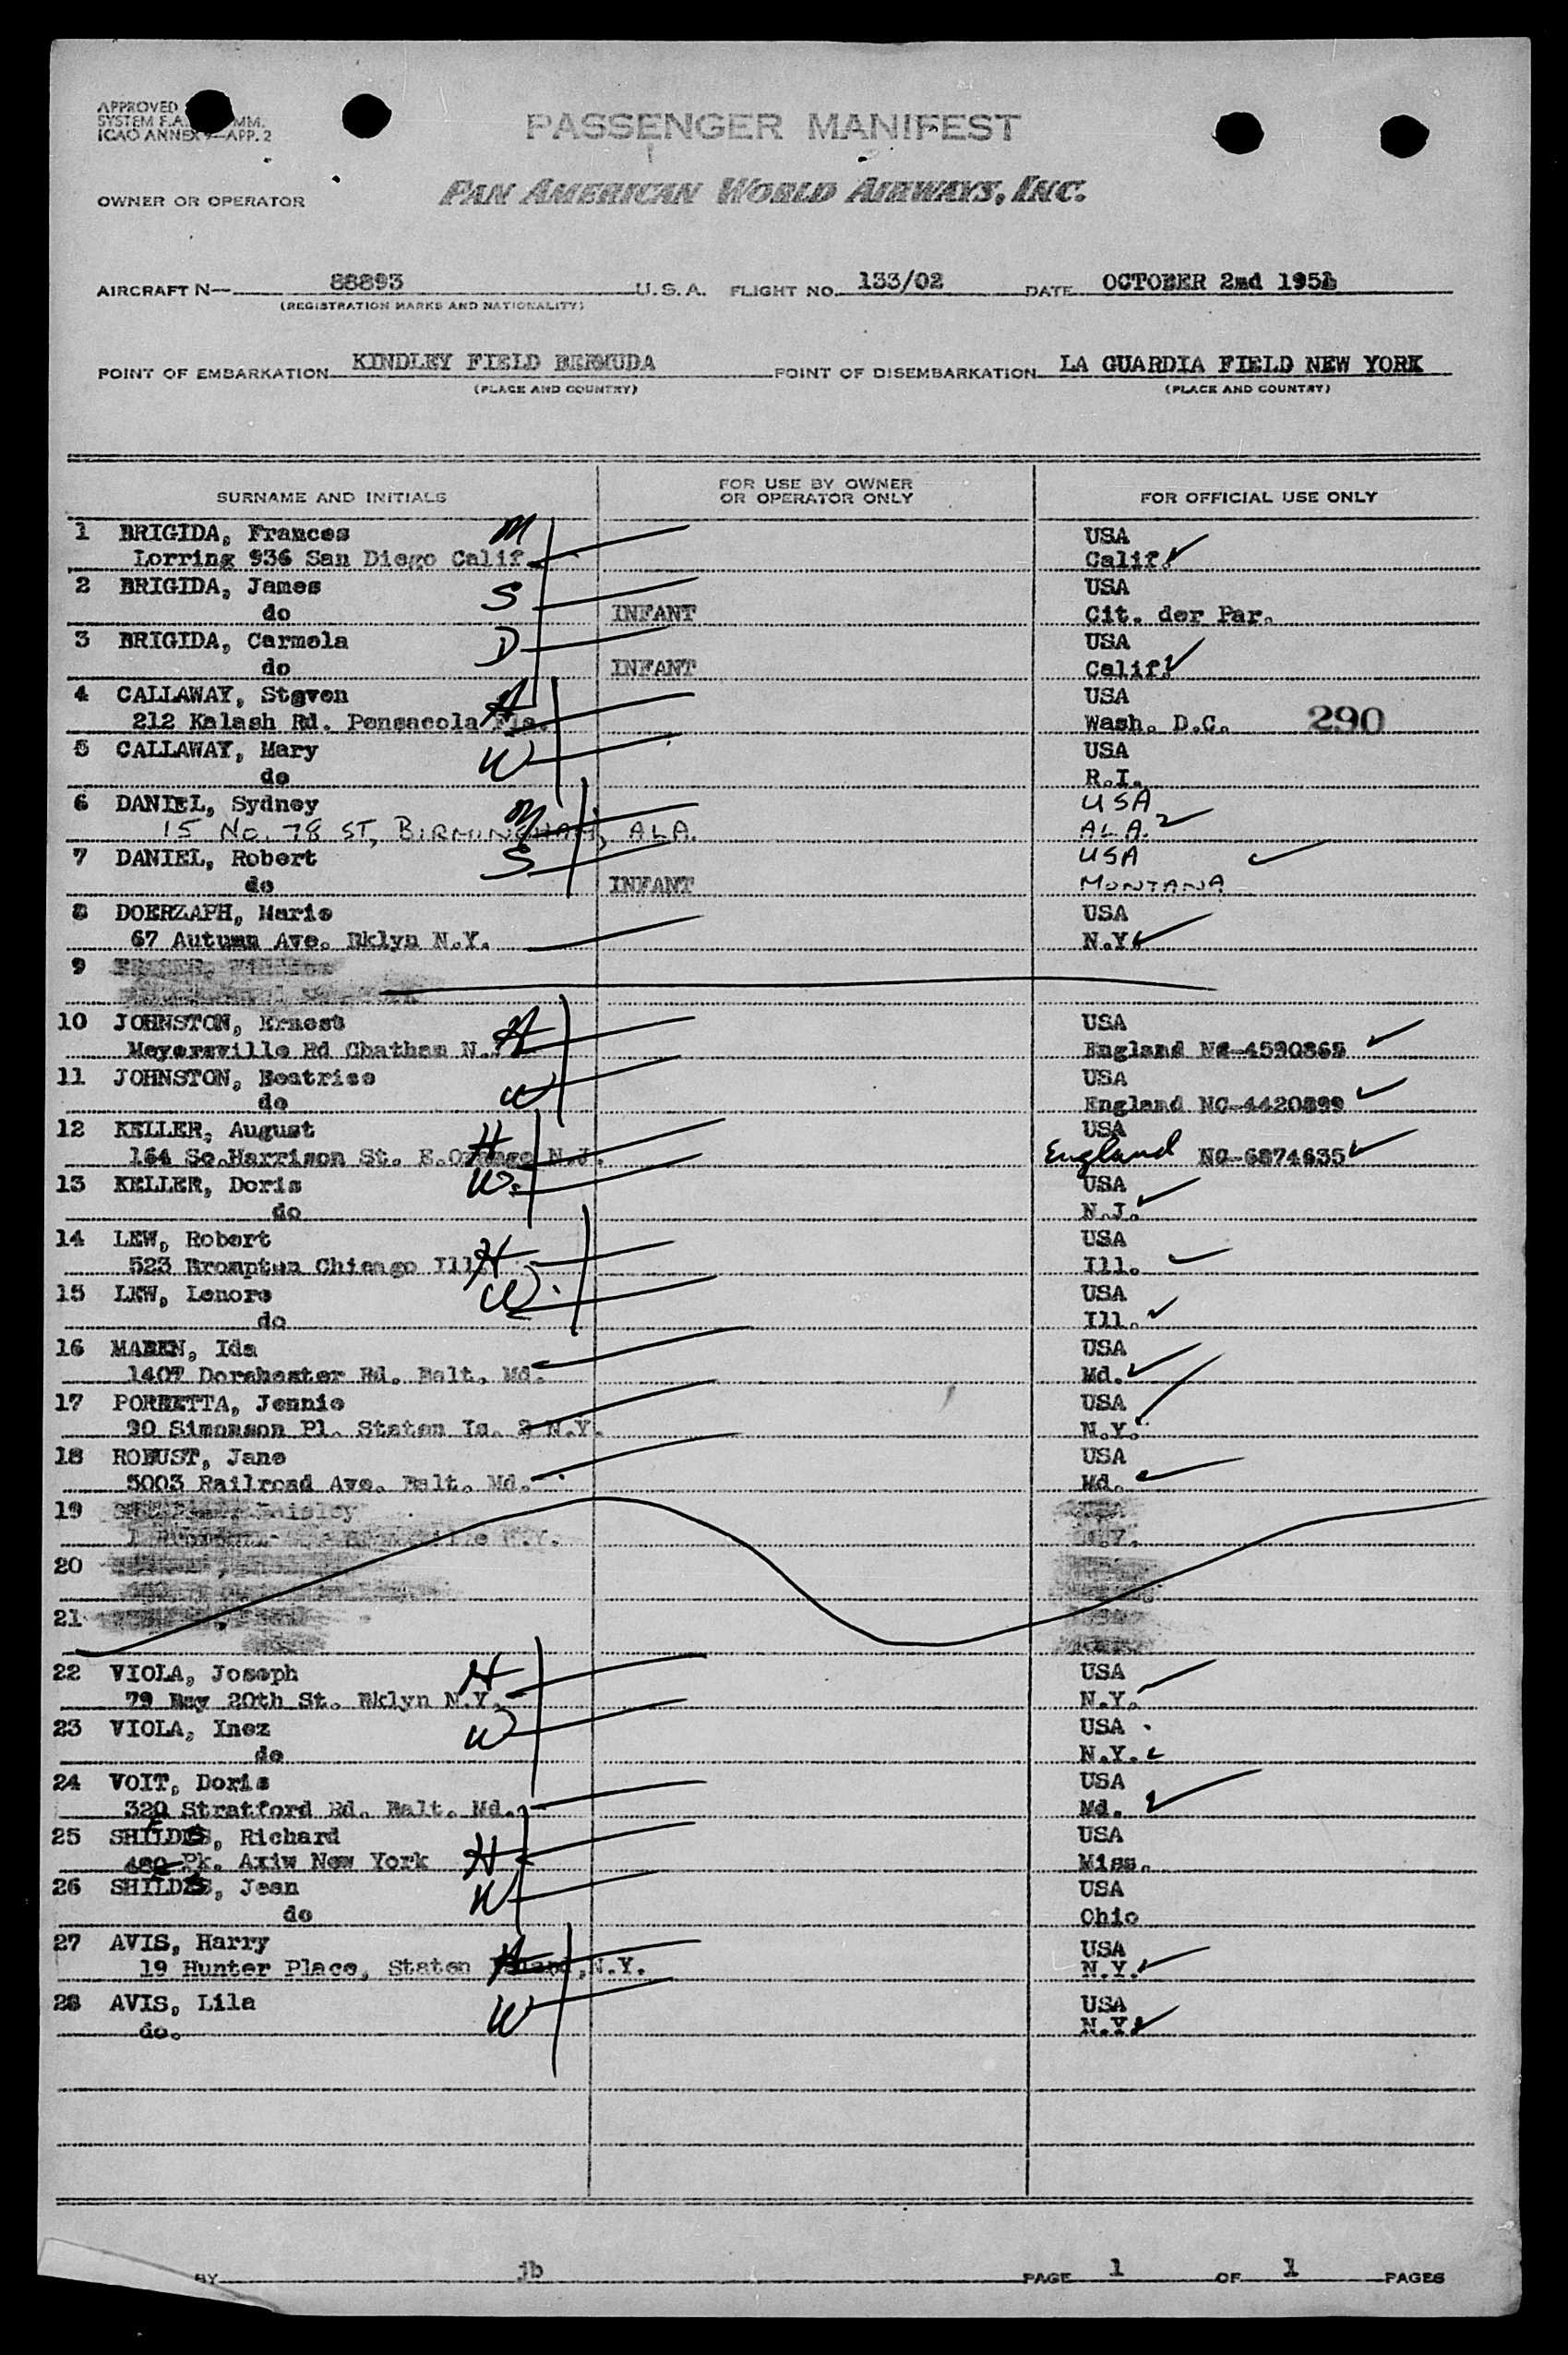 APPROVED
SYSTEM F.A. MM.
ICAO ANNEX 9—APP. 2
PASSENGER MANIFEST
OWNER OR OPERATOR
PAN AMERICAN WORLD AIRWAYS, INC.
AIRCRAFT N— 88893 U.S.A. FLIGHT NO. 133/02 DATE OCTOBER 2nd 1951
(REGISTRATION MARKS AND NATIONALITY)
POINT OF EMBARKATION KINDLEY FIELD BERMUDA POINT OF DISEMBARKATION LA GUARDIA FIELD NEW YORK
(PLACE AND COUNTRY) (PLACE AND COUNTRY)
SURNAME AND INITIALS FOR USE BY OWNER OR OPERATOR ONLY FOR OFFICIAL USE ONLY
1 BRIGIDA, Frances M USA
Lorring 936 San Diego Calif. Calif.
2 BRIGIDA, James S USA
do INFANT Cit. der Par.
3 BRIGIDA, Carmela D USA
do INFANT Calif.
4 CALLAWAY, Steven H USA
212 Kalash Rd. Pensacola Fla. Wash. D.C. 290
5 CALLAWAY, Mary W USA
do R.I.
6 DANIEL, Sydney M USA
15 No. 78 ST, BIRMINGHAM, ALA. ALA.
7 DANIEL, Robert S USA
do INFANT MONTANA
8 DOERZAPH, Marie USA
67 Autumn Ave. Bklyn N.Y. N.Y.
9
10 JOHNSTON, Ernest H USA
Meyersville Rd Chatham N.J. England NC-4590865
11 JOHNSTON, Beatrice W USA
do England NC-4420899
12 KELLER, August H USA
164 So.Harrison St. E.Orange N.J. England NC-6874635
13 KELLER, Doris W. USA
do N.J.
14 LEW, Robert H USA
523 Brompton Chicago Ill. Ill.
15 LEW, Lenore W USA
do Ill.
16 MABEN, Ida USA
1407 Dorchester Rd. Balt. Md. Md.
17 PORRETTA, Jennie USA
90 Simonson Pl. Staten Is. 2 N.Y. N.Y.
18 ROBUST, Jane USA
5003 Railroad Ave. Balt. Md. Md.
19
20
21
22 VIOLA, Joseph H USA
79 Bay 20th St. Bklyn N.Y. N.Y.
23 VIOLA, Inez W USA
do N.Y.
24 VOIT, Doris USA
320 Stratford Rd. Balt. Md. Md.
25 Richard USA
Pk. New York H Miss.
26 Jean W USA
do Ohio
27 AVIS, Harry H USA
19 Hunter Place, Staten Island, N.Y. N.Y.
28 AVIS, Lila W USA
do. N.Y.
BY jb PAGE 1 OF 1 PAGES